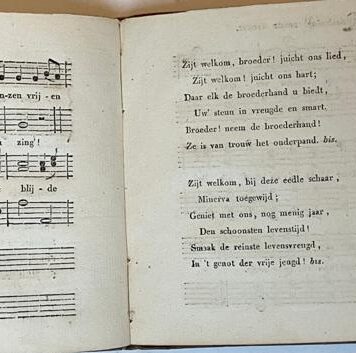 n-zen vrij - en
zing!
blij - de
Zijt welkom, broeder! juicht ons lied,
Zijt welkom! juicht ons hart;
Daar elk de broederhand u biedt,
Uw' steun in vreugde en smart.
Broeder! neem de broederhand!
Ze is van trouw het onderpand. bis.
Zijt welkom, bij deze eedle schaar,
Minerva toegewijd;
Geniet met ons, nog menig jaar,
Den schoonsten levenstijd!
Smaak de reinste levensvreugd,
In 't genot der vrije jeugd! bis.